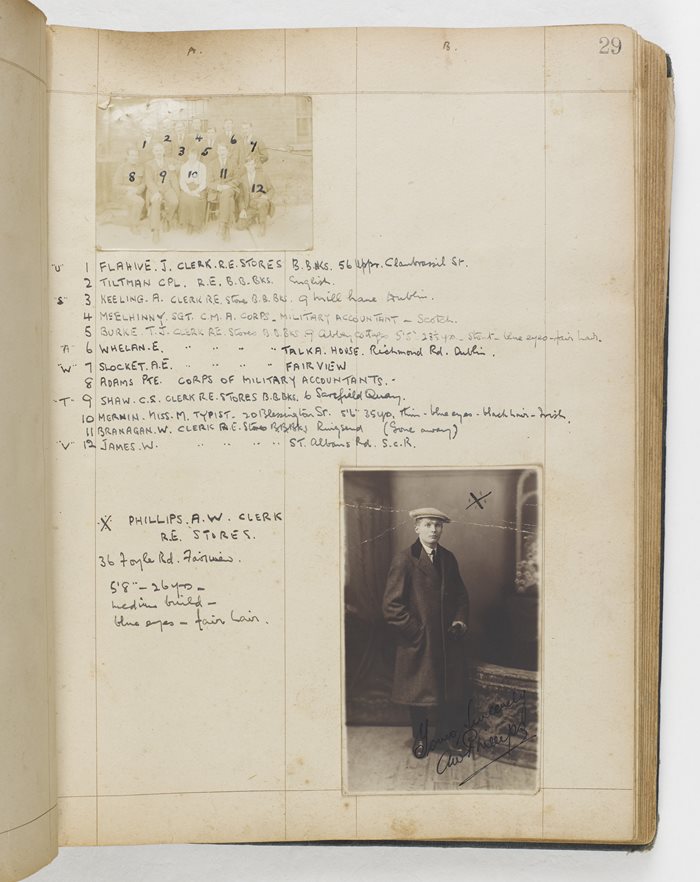 A.
B.
29
1 2 3 4 5 6 7
8 9 10 11 12
"U" 1 FLAHIVE. J. CLERK. R.E. STORES B.B.BKS. 56 Uppr. Clanbrassil St.
2 TILTMAN CPL. R.E. B.B.BKS. English.
"S" 3 KEELING. A. CLERK R.E. Stores B.B.BKS. 9 Mill Lane Dublin.
4 MCELHINNY. SGT. C.M.A. CORPS. MILITARY ACCOUNTANT - Scotch.
5 BURKE. T.J. CLERK R.E. Stores B.B.BKS. 9 Abbey Cottages 5'5" 23½ yrs - Stout - blue eyes - fair hair.
"A" 6 WHELAN. E. " " " " TALKA. HOUSE. Richmond Rd. Dublin.
"W" 7 SLOCKET. A.E. " " " " FAIRVIEW
8 ADAMS PTE. CORPS OF MILITARY ACCOUNTANTS. -
-T- 9 SHAW. C.S. CLERK R.E. STORES B.B.BKS. 6 Sarsfield Quay.
10 MERNIN. MISS. M. TYPIST - 20 Blessington St. 35 yo, thin - blue eyes - black hair - Irish.
11 BRANAGAN. W. CLERK R.E. Stores B.B.BKS Ringsend (Gone away)
"V" 12 JAMES. W. " " " " ST. Albans Rd. S.C.R.
X PHILLIPS. A.W. CLERK
R.E. STORES.
36 Foyle Rd. Fairview.
5'8" - 26 yrs -
medium build -
blue eyes - fair hair.
X
Yours Sincerely
AW Phillips